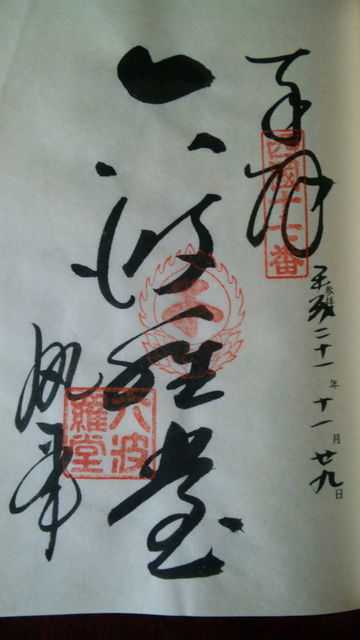 奉拝
西國十七番
参拝
平成二十一年十一月廿九日
六波羅堂
六波
羅堂